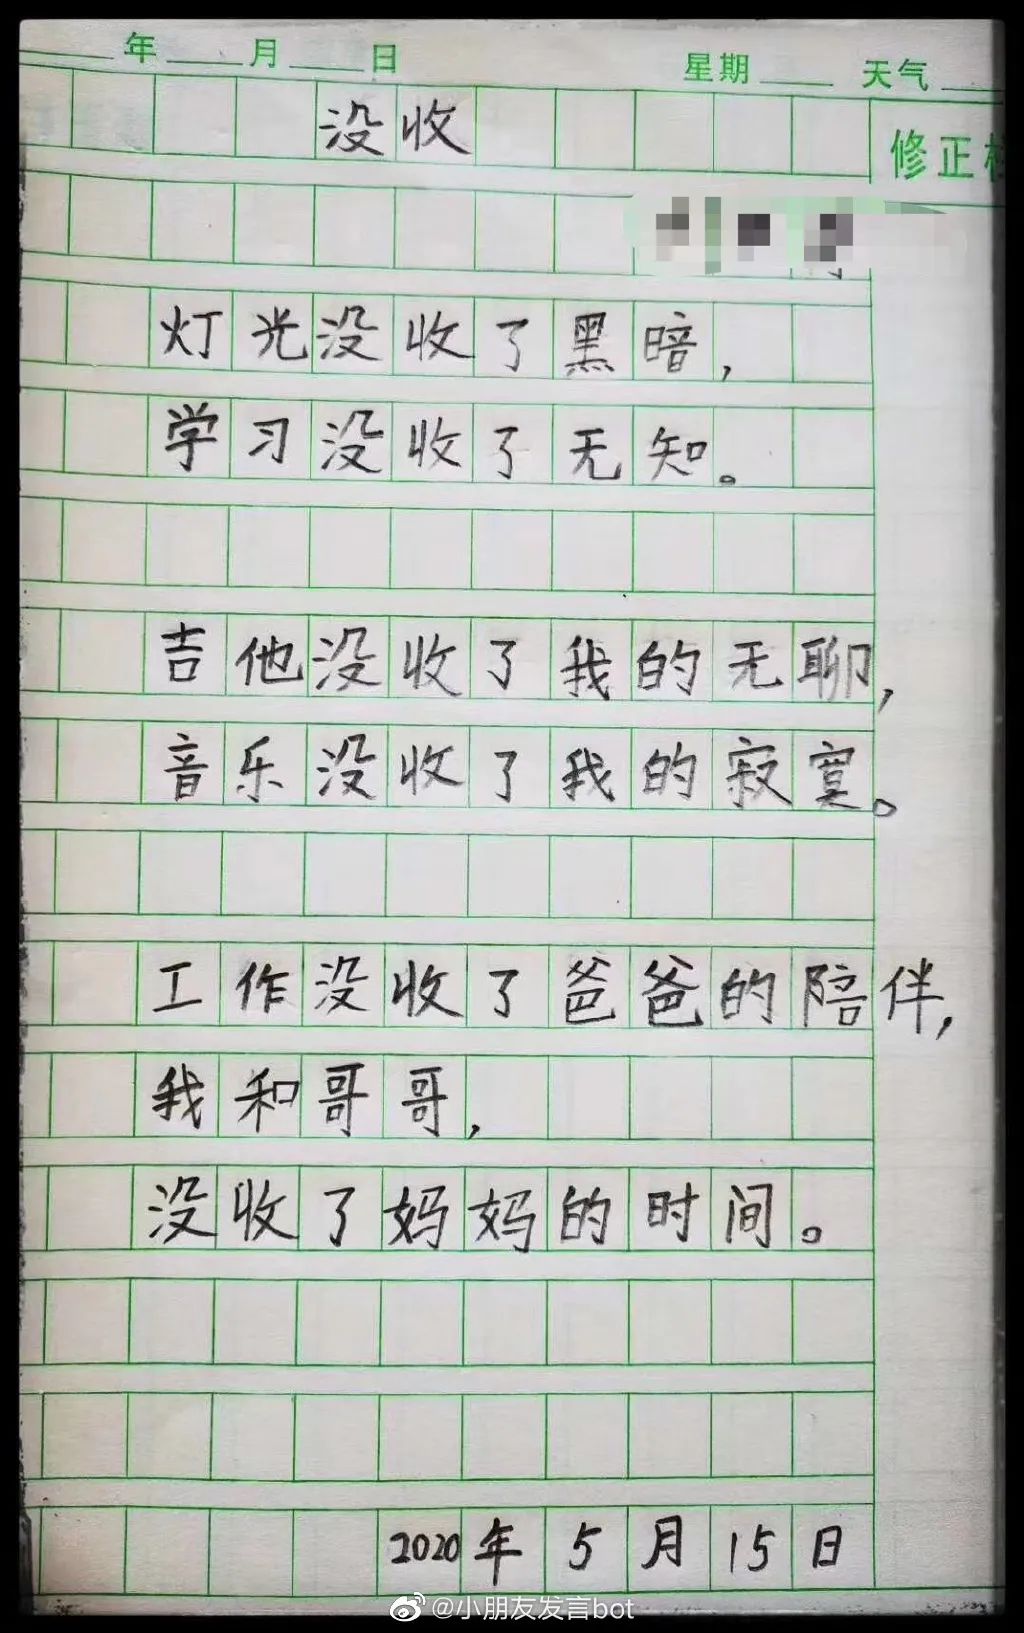 年 月 日 星期 天气
没收
修正
灯光没收了黑暗，
学习没收了无知。
吉他没收了我的无聊，
音乐没收了我的寂寞。
工作没收了爸爸的陪伴，
我和哥哥，
没收了妈妈的时间。
2020年5月15日
@小朋友发言bot